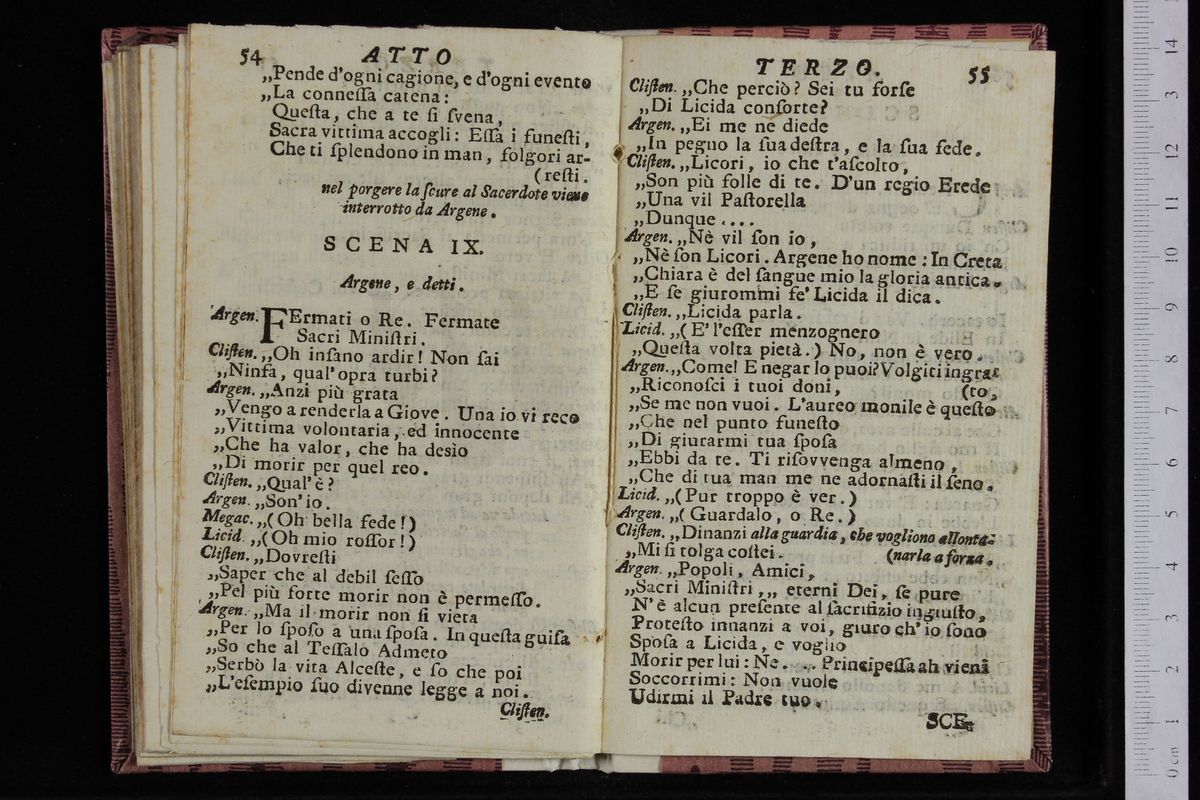 54 ATTO
„Pende d'ogni cagione, e d'ogni evento
„La connessa catena:
Questa, che a te si svena,
Sacra vittima accogli: Essa i funesti,
Che ti splendono in man, folgori ar-
(resti.
nel porgere la scure al Sacerdote viene
interrotto da Argene.
SCENA IX.
Argene, e detti.
Argen. FErmati o Re. Fermate
Sacri Ministri.
Clisten. „Oh insano ardir! Non sai
„Ninfa, qual' opra turbi?
Argen. „Anzi più grata
„Vengo a renderla a Giove. Una io vi reco
„Vittima volontaria, ed innocente
„Che ha valor, che ha desìo
„Di morir per quel reo.
Clisten. „Qual' è?
Argen. „Son' io.
Megac. „(Oh bella fede!)
Licid. „(Oh mio rossor!)
Clisten. „Dovresti
„Saper che al debil sesso
„Pel più forte morir non è permesso.
Argen. „Ma il morir non si vieta
„Per lo sposo a una sposa. In questa guisa
„So che al Tessalo Admeto
„Serbò la vita Alceste, e so che poi
„L'esempio suo divenne legge a noi.
Clisten.
TERZO. 55
Clisten. „Che perciò? Sei tu forse
„Di Licida consorte?
Argen. „Ei me ne diede
„In pegno la sua destra, e la sua fede.
Clisten. „Licori, io che t'ascolto,
„Son più folle di te. D'un regio Erede
„Una vil Pastorella
„Dunque ....
Argen. „Nè vil son io,
„Nè son Licori. Argene ho nome: In Creta
„Chiara è del sangue mio la gloria antica.
„E se giurommi fe' Licida il dica.
Clisten. „Licida parla.
Licid. „(E' l'esser menzognero
„Questa volta pietà.) No, non è vero.
Argen. „Come! E negar lo puoi? Volgiti ingra-
„Riconosci i tuoi doni, (to,
„Se me non vuoi. L'aureo monile è questo
„Che nel punto funesto
„Di giurarmi tua sposa
„Ebbi da te. Ti risovvenga almeno,
„Che di tua man me ne adornasti il seno.
Licid. „(Pur troppo è ver.)
Argen. „(Guardalo, o Re.)
Clisten. „Dinanzi alla guardia, che vogliono allonta-
„Mi si tolga costei. (narla a forza.
Argen. „Popoli, Amici,
„Sacri Ministri,„ eterni Dei, se pure
N' è alcun presente al sacrifizio ingiusto,
Protesto innanzi a voi, giuro ch' io sono
Sposa a Licida, e voglio
Morir per lui: Ne.... Principessa ah vieni
Soccorrimi: Non vuole
Udirmi il Padre tuo.
SCE-